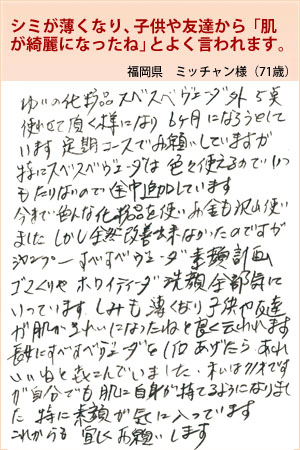 シミが薄くなり、子供や友達から「肌
が綺麗になったね」とよく言われます。
福岡県 ミッチャン様（71歳）
ゆいの化粧品スベスベヴェーダ外5点
使わせて頂く様になり 6ヶ月になろうとして
います 定期コースでお願いしていますが
特にスベスベヴェーダは色々使えるのでいつ
もたりないので途中追加しています
今まで色んな化粧品を使いお金も沢山使い
ました しかし全然改善出来なかったのですが
シャンプー すべすべヴェーダ 素顔計画
ホワイティーダ 洗顔全部気に
いっています しみも薄くなり子供や友達
が肌がきれいになったねと良く云われます
すべすべヴェーダを1個あげたら
いいねと喜こんでいました
が自分でも肌に自身が持てるようになりまし
た 特に素顔が気に入っています
これからも宜しくお願いします